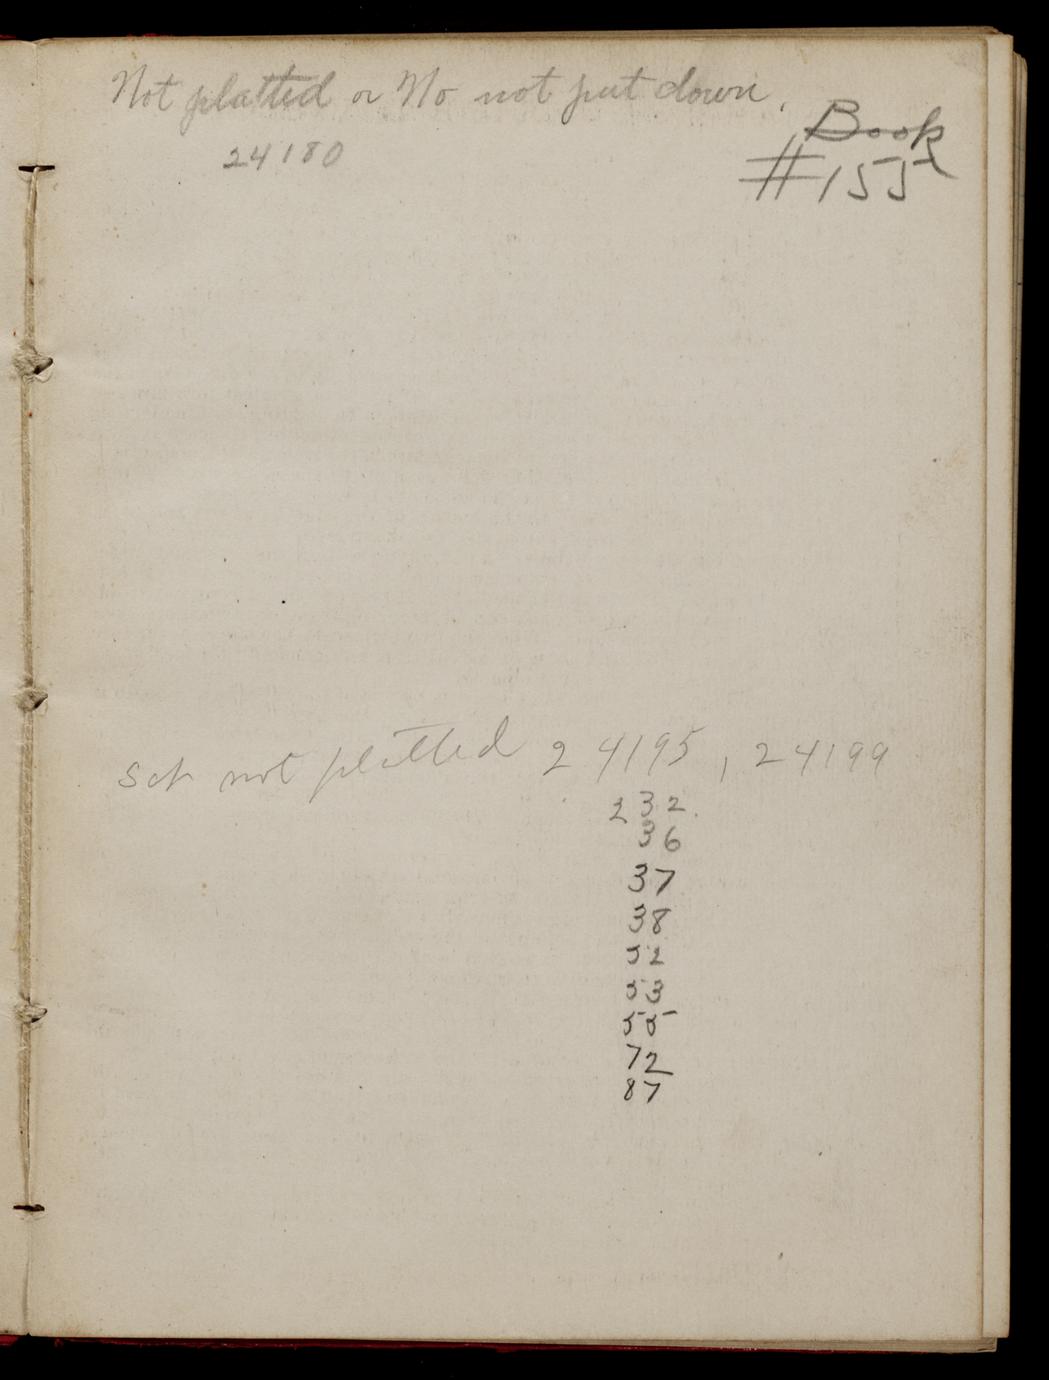 Not platted or No not put down.
24180
Book
#155
Sch not platted 24195, 24199
232
36
37
38
52
53
55
72
87